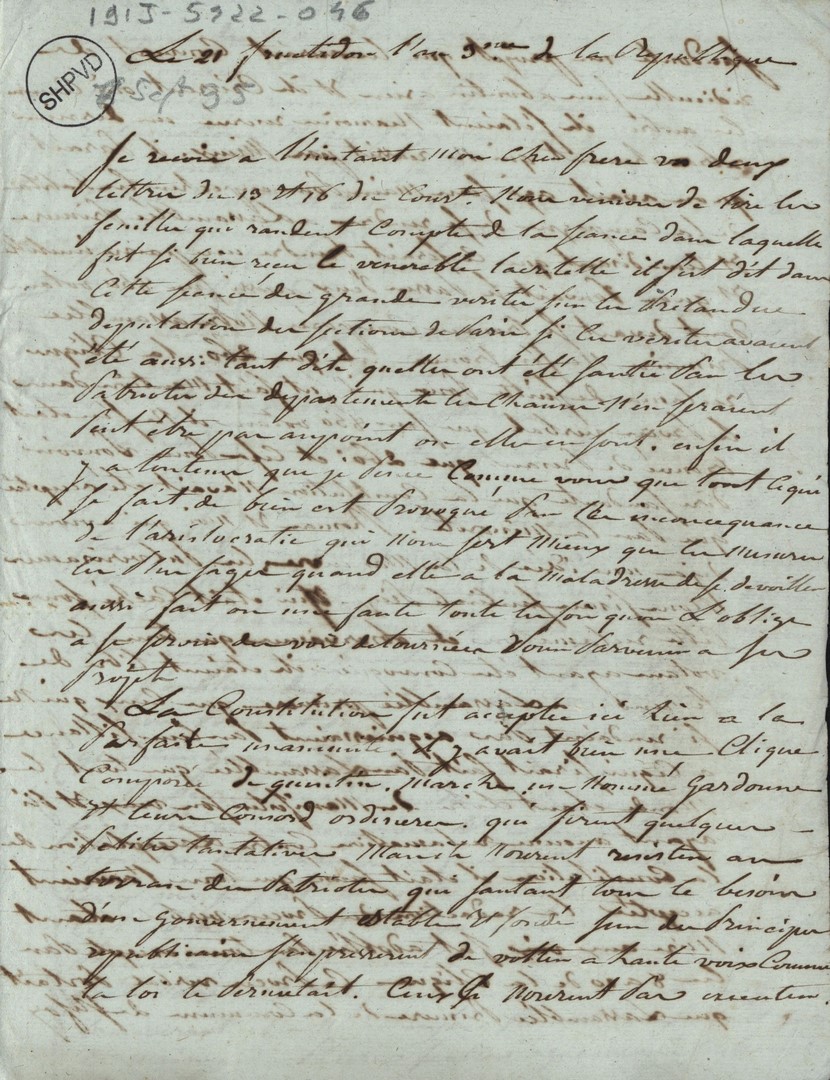 191J-5922-046
SHPVD
7 Sept 95
Le 21 fructidor l'an 3eme de la Republique
Je recois a l'instant mon cher frere vos deux
lettres du 13 et 16 du court. Nous venions de lire les
feuilles qui randent Compte de la seance dans laquelle
fut si bien recu le venerable lacretelle il fut dit dans
Cette seance des grandes verites sur la pretandue
deputation des sections de Paris si les verites avaient
été aussi tant dites quelles ont été santies Par les
Patriotes des departements les Choses n'en seraient
Peut être pas au point ou elles en sont. enfin il
y a longtems que je pense Comme vous que tout ce qui
se fait de bien est Provoqué Par les inconcequances
de l'aristocratie qui nous sert Mieux que les mesures
les Plus sages quand elle a la Maladresse de se devoiller
aussi fait on une faute toute les fois quon L'oblige
a se servir des voies detournées Pour Parvenir a ses
Projets
La Constitution fut acceptée ici Rien a la
Parfaite unanimité. il y avait bien une Clique
Composée de quentin, Marche, un Nommé Gardonne
et leurs Consord ordineres. qui firent quelques
Petites tantatives Mais ils Nourent resister au
torrant des Patriotes qui santant tous le besoin
d'un gouvernement stable et fondé sur des Principes
republicains s'empresserent de votter a haute voix Comme
la loi le Permetait. Ceux Ci Nourent Par